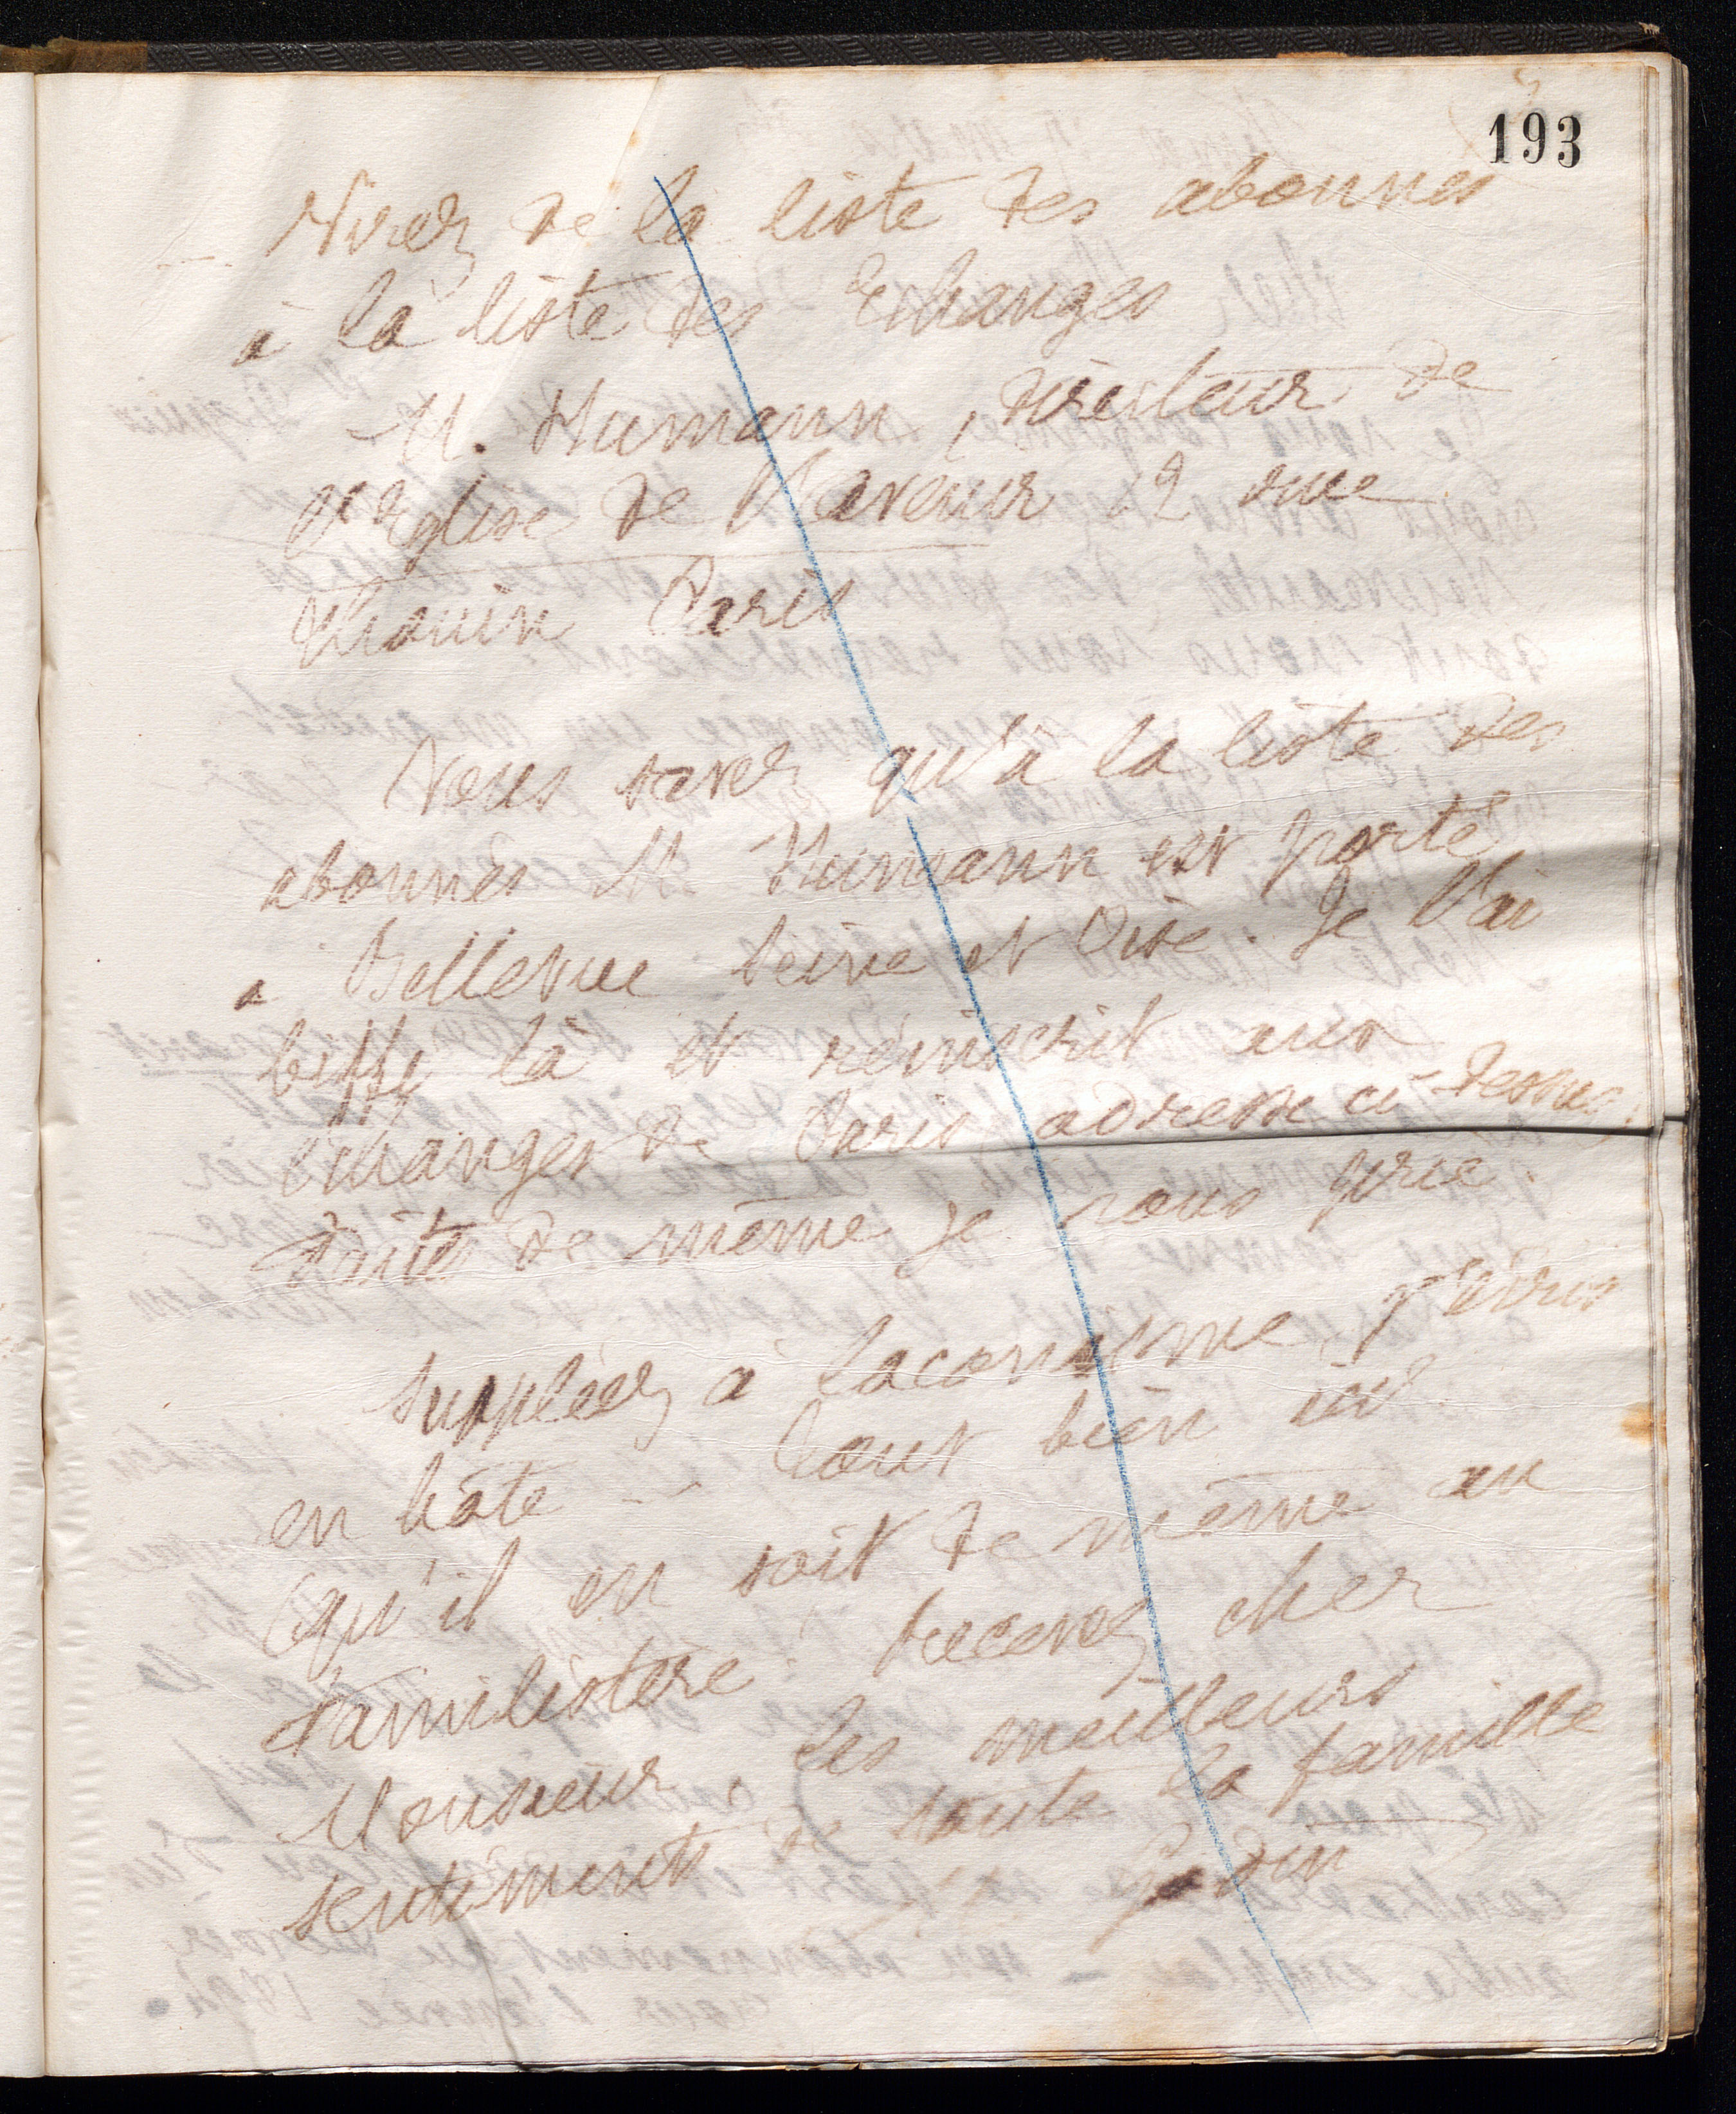 193
— Virez de la liste des abonnés
à la liste des Echanges
M. Humann, directeur de
l'Eglise de l'avenir 2 rue
Thouin Paris
Vous savez qu'à la liste des
abonnés M. Humann est porté
a Bellevue Seine et Oise. Je l'ai
biffé là et réinscrit aux
échanges de Paris adresse ci-dessus.
Faites de même je vous prie.
Suppléez à laconisme, j'écris
en hâte — Tout bien ici.
Qu'il en soit de même au
Familistère. Recevez cher
Monsieur, les meilleurs
sentiments de toute la famille
Godin